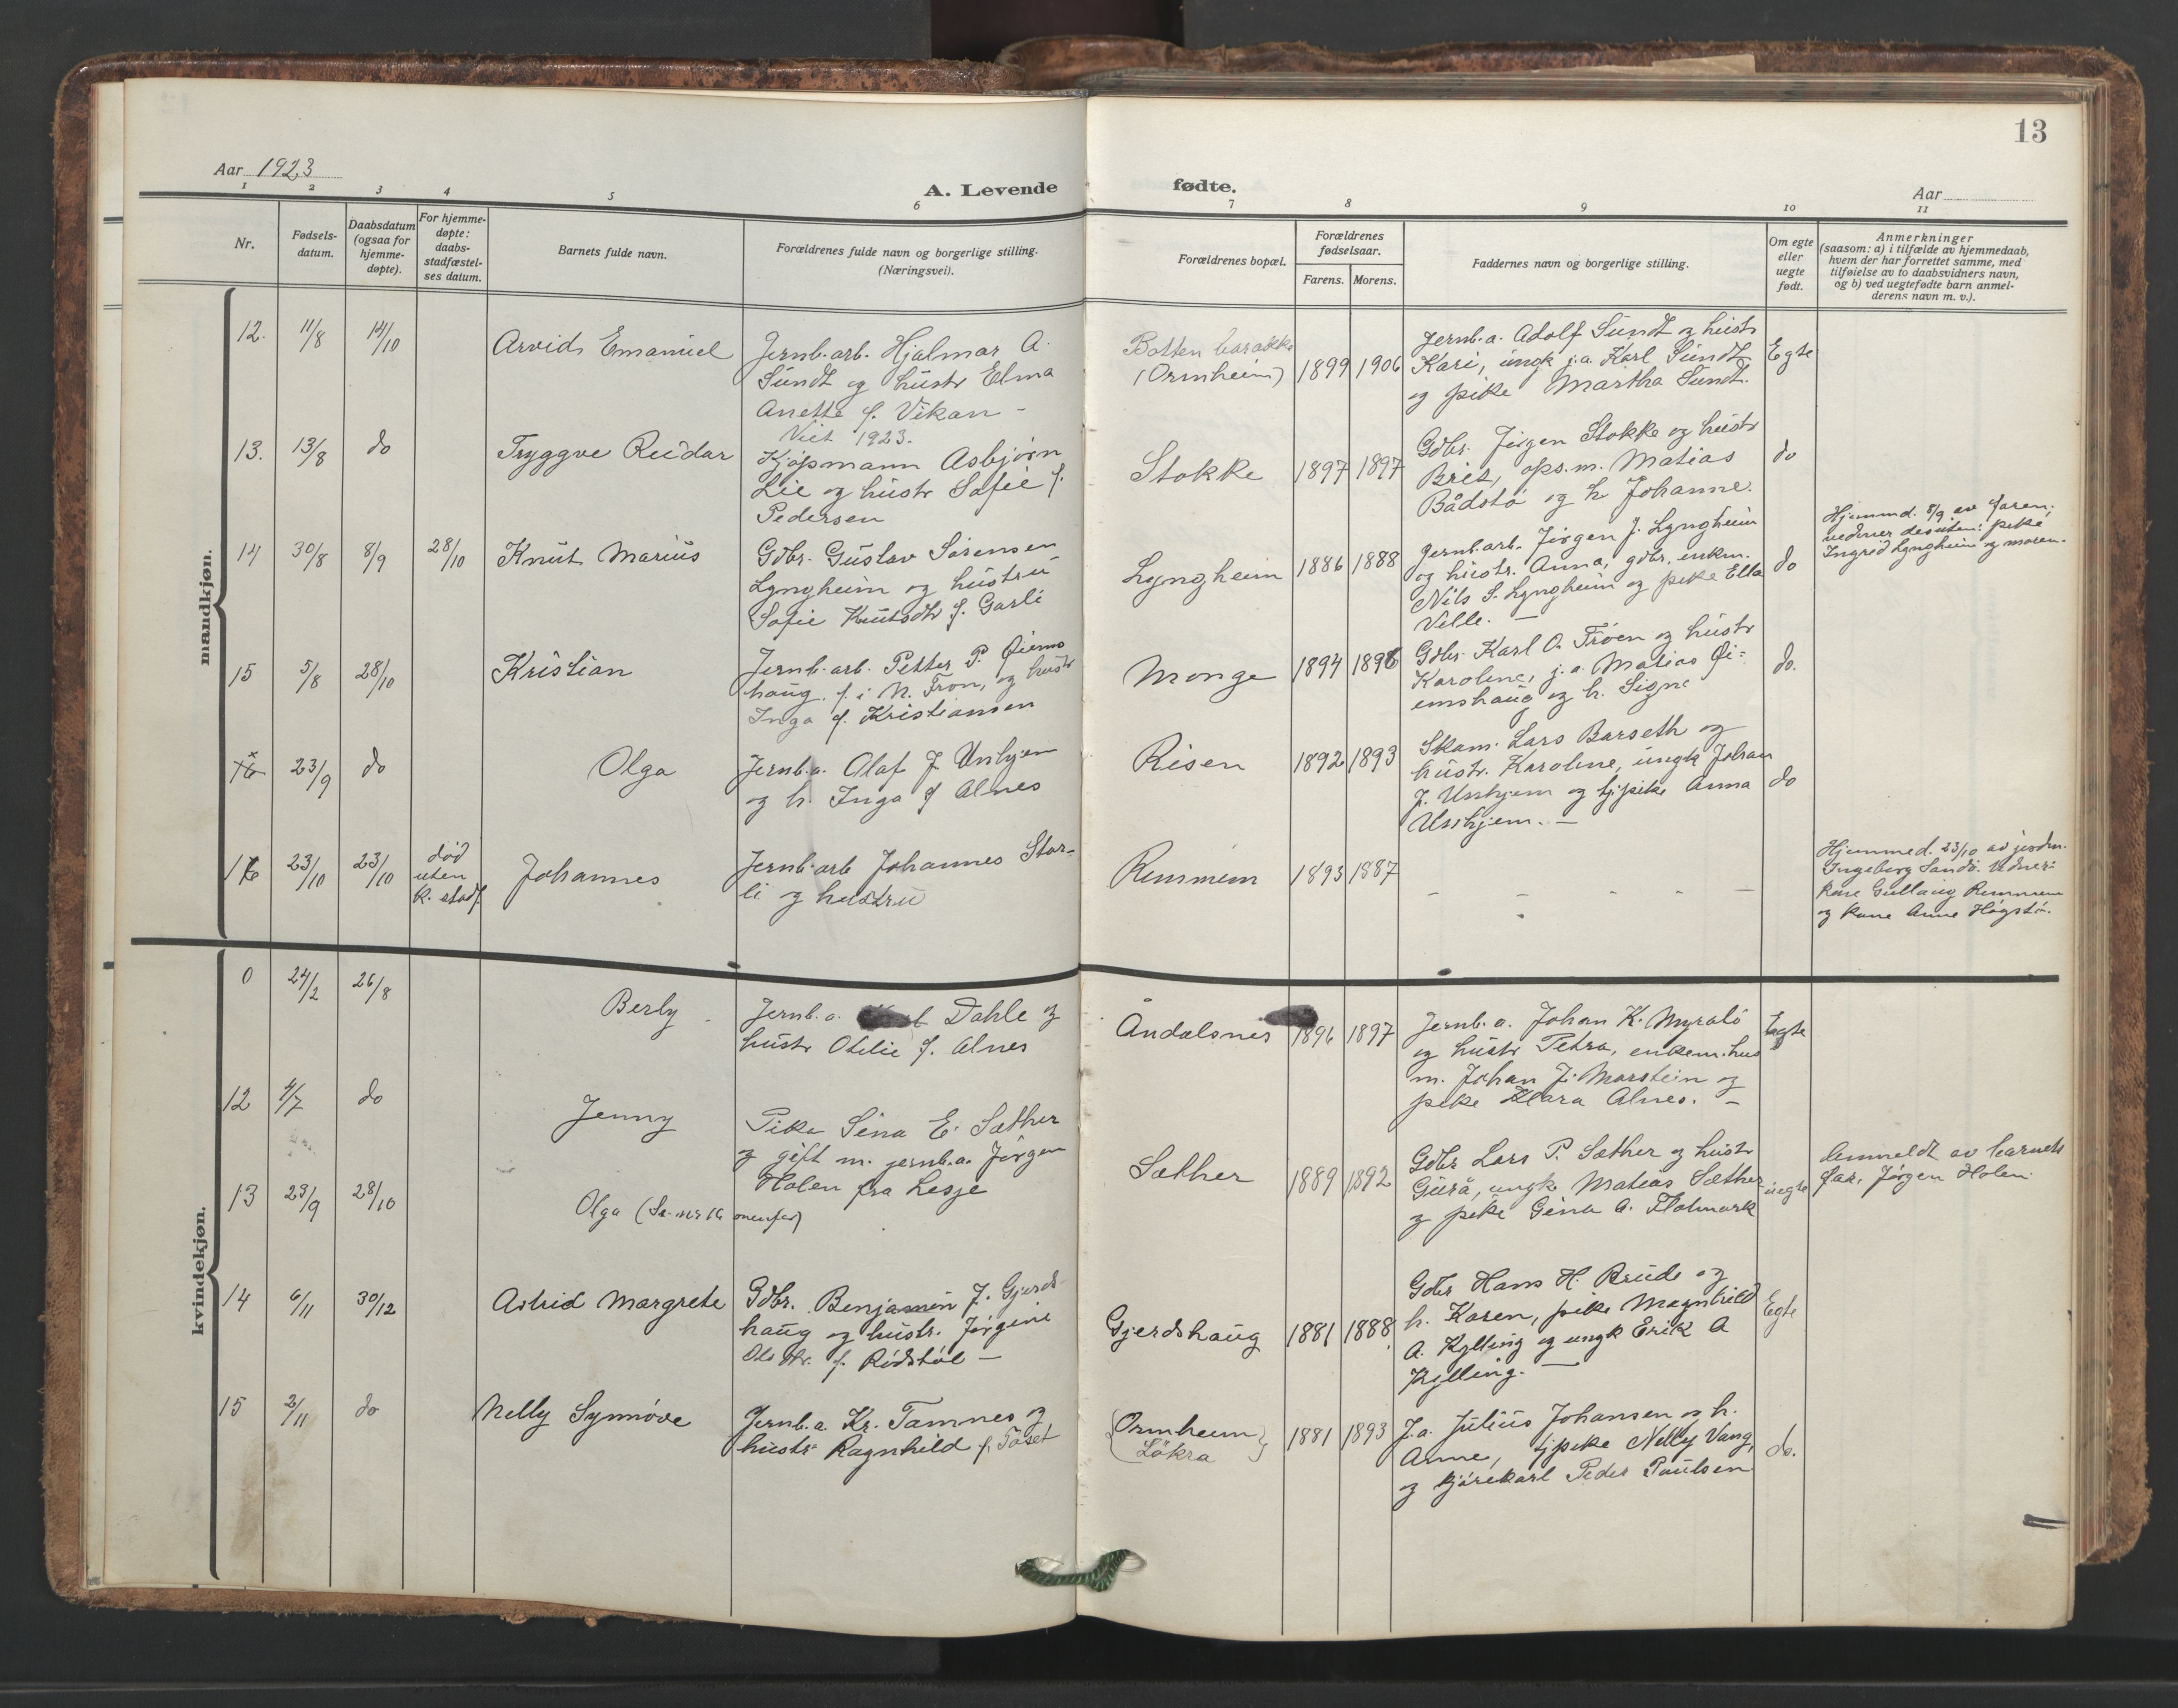 13
Aar 1923
A. Levende
fødte.
Aar
1 2 3 4 5 6 7 8 9 10 11
Nr.
Fødsels-
datum.
Daabsdatum
(ogsaa for
hjemme-
døpte).
For hjemme-
døpte:
daabs-
stadfæstel-
ses datum.
Barnets fulde navn.
Forældrenes fulde navn og borgerlige stilling.
(Næringsvei).
Forældrenes bopæl.
Forældrenes
fødselsaar.
Farens. Morens.
Faddernes navn og borgerlige stilling.
Om egte
eller
uegte
født.
Anmerkninger
(saasom: a) i tilfælde av hjemmedaab,
hvem der har forrettet samme, med
tilføielse av to daabsvidners navn,
og b) ved uegtefødte barn anmel-
derens navn m. v.).
mandkjøn.
12. 11/8 14/10
Arvid Emanuel
Jernb.arb. Hjalmar A.
Sundt og hustr Elma
Anette f. Vikan -
Viet 1923.
Botten barakke
(Ormheim)
1899 1906
Jernb.a. Adolf Sundt og hustr
Kari, ungk j.a. Karl Sundt
og pike Martha Sundt.
Egte
13. 13/8 do
Tryggve Reidar
Kjøpmann Asbjørn
Lie og hustr Sofie f.
Pedersen
Stokke
1897 1897
Gdbr. Jørgen Stokke og hustr
Brit, ops.m. Matias
Bådstø og h. Johanne.
do
14 30/8 8/9 28/10
Knut Marius
Gdbr. Gustav Sørensen
Lyngheim og hustru
Sofie Knutsdtr f. Garli
Lyngheim
1886 1888
Jernb.arb. Jørgen J. Lyngheim
og hustr. Anna, gdbr. enkm.
Nils S. Lyngheim og pike Ella
Velle. -
do
Hjemmd. 8/9 av faren.
vidner desuten: pike
Ingrid Lyngheim og moren.
15 5/8 28/10
Kristian
Jernb.arb. Petter P. Øiems
haug f. i N. Fron, og hustr
Inga f. Kristiansen
Monge
1894 1898
Gdbr. Karl O. Trøen og hustr
Karoline, j.a. Matias Øi-
emshaug og h. Signe
do.
x
16 23/9 do
Olga
Jernb.a. Olaf J. Unhjem
og h. Inga f Alnes
Risen
1892 1893
Skom. Lars Barseth og
hustr. Karoline, ungk Johan
J. Unhjem og tj.pike Anna
Unhjem. -
do
16 23/10 23/10
død
uten
k. stadf.
Johannes
Jernb.arb Johannes Stor-
li og hustru
Remmem
1893 1887
- - - - -
Hjemmed. 23/10 av jordm.
Ingeborg Sandø. Vidner:
kone Gullaug Remmem
og kone Anne Høgstø.
kvindekjøn.
0 24/2 26/8
Berly
Jernb.a. Dahle og
hustr Otelie f. Alnes
Åndalsnes
1896 1897
Jernb.a. Johan K. Myrabø
og hustr Petra, enkem.hus
m. Johan J. Marstein og
pike Klara Alnes. -
Egte
12 4/7 do
Jenny
Pike Sina E. Sæther
og gift m. jernb.a. Jørgen
Holen fra Lesje
Sæther
1889 1892
Gdbr Lars P. Sæther og hustr
Gurå, ungk Matias Sæther
og pike Gina A. Flatmark
uegte
Anmeldt av barnets
far, Jørgen Holen.
13 23/9 28/10
Olga (Se nr 16 ovenfor)
14 6/11 30/12
Astrid Margrete
Gdbr. Benjamin J. Gjerds-
haug og hustr. Jørgine
Olsdtr. f. Rødstøl -
Gjerdshaug
1881 1888
Gdbr Hans H. Brude og
h. Karen, pike Magnhild
A. Kylling og ungk Erik A
Kylling. -
Egte
15 2/11 do
Nelly Synnøve
Jernb.a. Kr. Tamnes og
hustr Ragnhild f. Tøset
(Ormheim)
Løkra
1881 1893
J.a. Julius Johansen og h.
Anne, tj.pike Nelly Vang,
og kjørekarl Peder Paulsen
do.